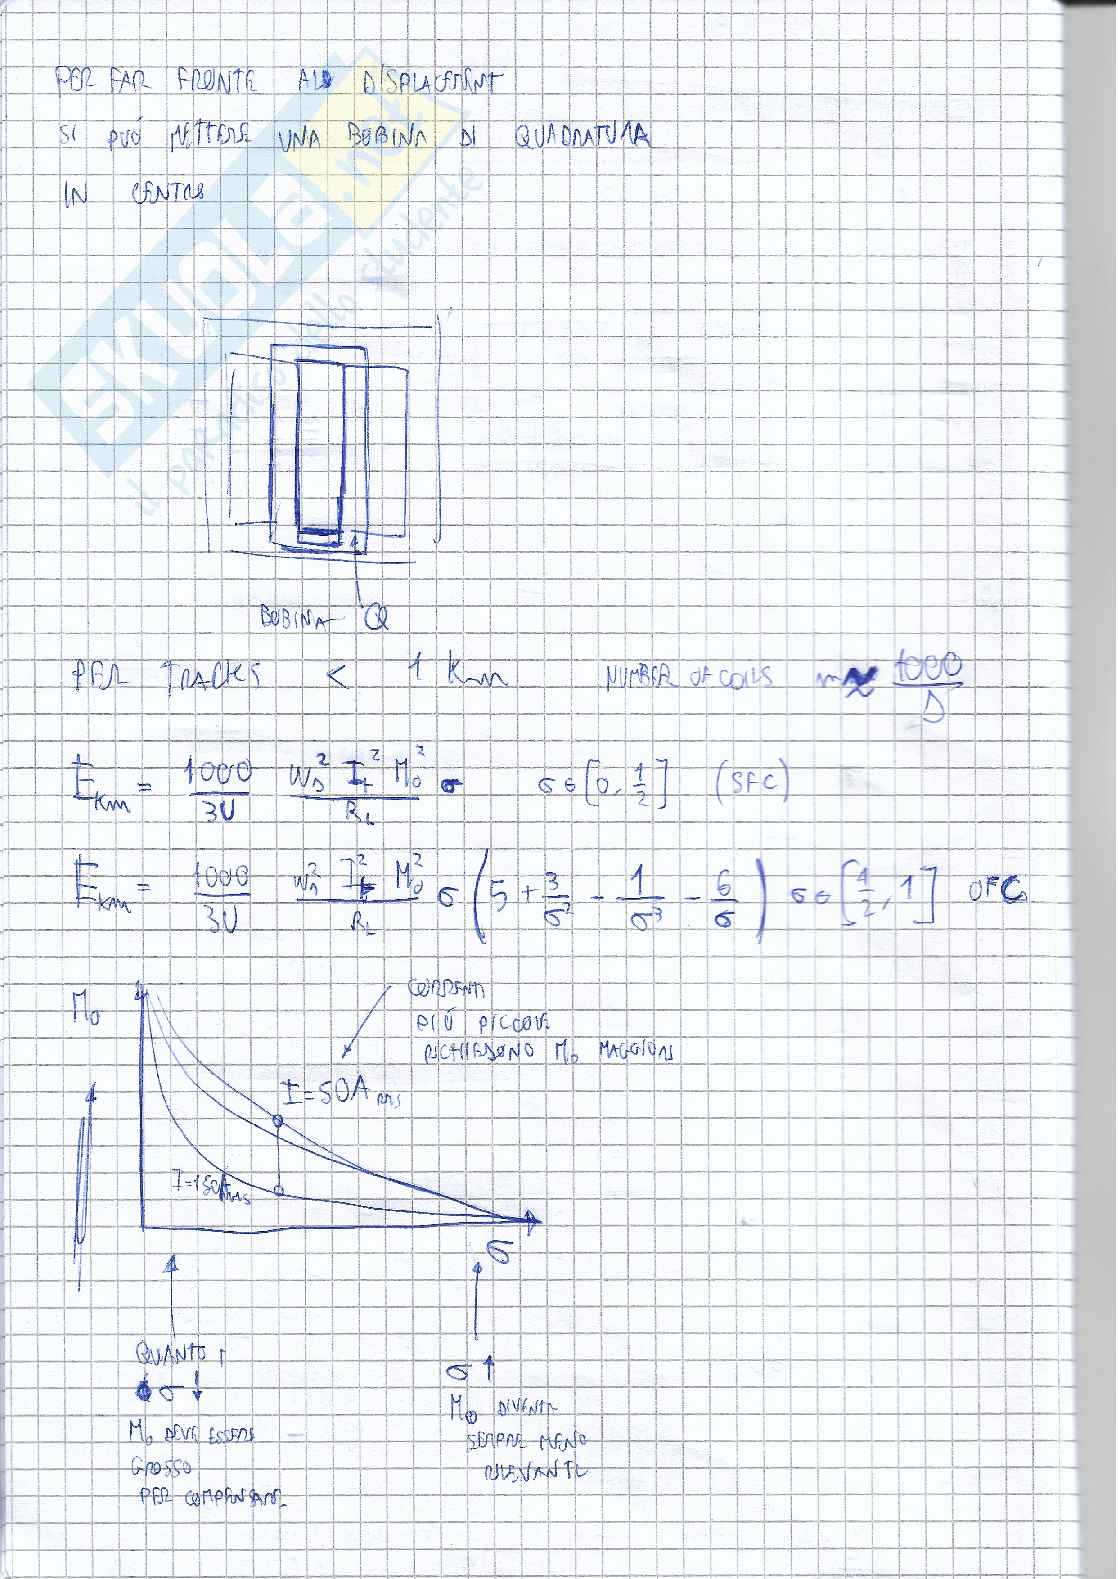 PER FAR FRONTE AL DISPLACEMENT
SI PUÒ METTERE UNA BOBINA DI QUADRATURA
IN CENTRO
SKUOLA.net
il paradiso dello studente
BOBINA Q
PER TRACKS < 1 Km NUMBER OF COILS m ≈ 1000/D
E_km = 1000/3U ω_s² I_t² M_0²/R_L σ σ ∈ [0, 1/2] (SFC)
E_km = 1000/3U ω_s² I_t² M_0²/R_L σ (5 + 3/σ² - 1/σ³ - 6/σ) σ ∈ [1/2, 1] OFC
M_0
CORRENTI
PIÙ PICCOLE
RICHIEDONO M_0 MAGGIORI
I = 50A rms
I = 150A rms
σ
QUANTO
σ ↓
M_0 DEVE ESSERE
GROSSO
PER COMPENSARE
σ ↑
M_0 DIVENTA
SEMPRE MENO
RILEVANTE